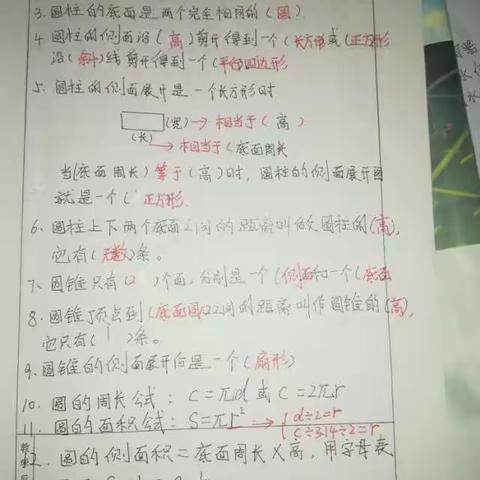 3. 圆柱的底面是两个完全相同的(圆).
4. 圆柱的侧面沿(高)剪开得到一个(长方形或(正方形
沿(斜)线剪开得到一个(平行四边形
5. 圆柱的侧面展开是一个长方形时
(宽)→相当于(高)
(长)
→相当于(底面周长
当(底面周长)等于(高)时,圆柱的侧面展开图
就是一个(正方形.
6. 圆柱上下两个底面之间的距离叫做圆柱的(高),
它有(无数)条。
7. 圆锥只有(2)个面,分别是一个(侧面和一个(底面
8. 圆锥顶点到(底面圆心之间的距离叫作圆锥的(高),
它只有(1)条。
9. 圆锥的侧面展开后是一个(扇形)
10. 圆的周长公式: C=πd 或 C=2πr
11. 圆的面积公式: S=πr² → d÷2=r
C÷3.14÷2=r
2. 圆的侧面积=底面周长×高,用字母表